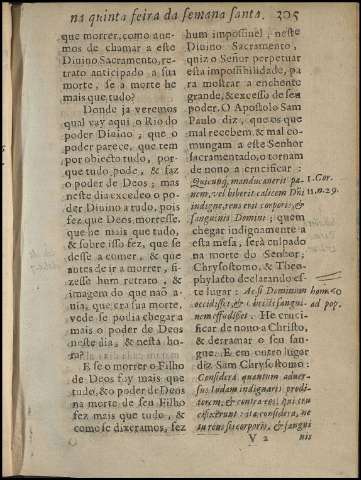 na quinta feira da semana santa. 305
que morrer, como ane-
mos de chamar a este
Diuino Sacramento, re-
trato anticipado a sua
morte, se a morte he
mais que tudo?
Donde ja veremos
qual vay aqui o Rio do
poder Diuino; que o
poder parece, que tem
por objecto tudo, por-
que tudo pode, & faz
o poder de Deos; mas
neste dia excedeo o po-
der Diuino a tudo, pois
fez que Deos morresse,
que he mais que tudo,
& sobre isso fez, que se
desse a comer, & que
antes de ir a morrer, fi-
zesse hum retrato, &
imagem do que naõ a-
uia, que era sua morte,
vede se podia chegar a
mais o poder de Deos
neste dia, & nesta ho-
ra?
E se o morrer o Filho
de Deos foy mais que
tudo, & o poder de Deos
na morte de seu Filho
fez mais que tudo, &
como se dixeramos, fez
hum impossiuel, neste
Diuino Sacramento,
quiz o Senhor perpetuar
esta impossibilidade, pa
ra mostrar a enchente
grande, & excesso de seu
poder. O Apostolo Sam
Paulo diz, que os que
mal recebem, & mal co-
mungam a este Senhor
sacramentado, o tornam
de nouo a crucificar:
Quicunq, manducauerit pa-
nem, vel biberit calicem Dñi
indigne, reus erit corporis, &
sanguinis Domini; quem
chegar indignamente a
esta mesa, será culpado
na morte do Senhor;
Chrysostomo, & Theo-
phylacto declarando es-
te lugar: Ac si Dominum
occidisset, & Christi sangui-
nem effudisset. He cruci-
ficar de nouo a Christo,
& derramar o seu san-
gue. E em outro lugar
diz Sam Chrysostomo:
Considera quantum aduer-
sus Iudam indignaris prodi-
torem, & contra eos, qui cru-
cifixerunt: ita considera, ne
tu reus sis corporis, & sangui
1. Cor.
11. n. 29.
hom. 60
ad pop.
V 2
nis